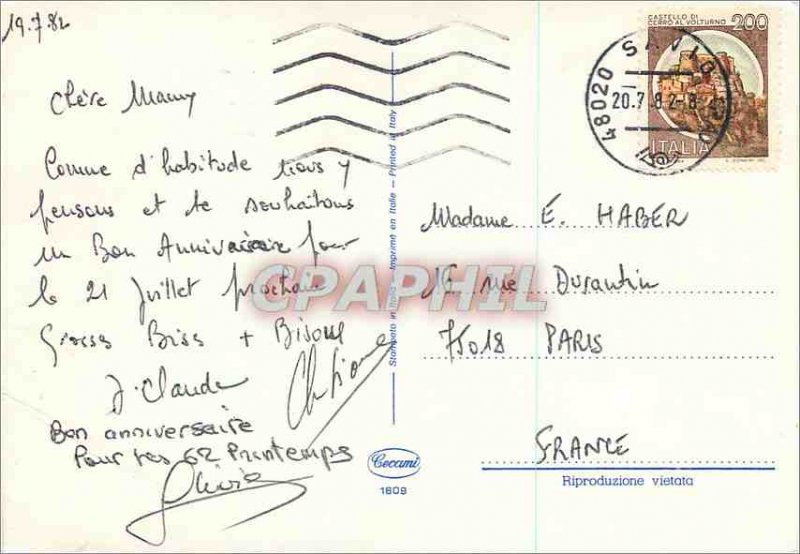 19.7.82
Chère Mamy
Comme d'habitude nous y
pensons et te souhaitons
un Bon Anniversaire pour
le 21 Juillet prochain
Grosses Bises + Bisous
J. Claude
Bon anniversaire
Pour tes 62 Printemps
CASTELLO DI
CERRO AL VOLTURNO 200
ITALIA
48020 SAVIO
20.7.82-8
Stampato in Italia - Imprimé en Italie - Printed in Italy
Madame E. HABER
16, rue Durantin
75018 PARIS
FRANCE
CPAPHIL
Ceccami
1609
Riproduzione vietata